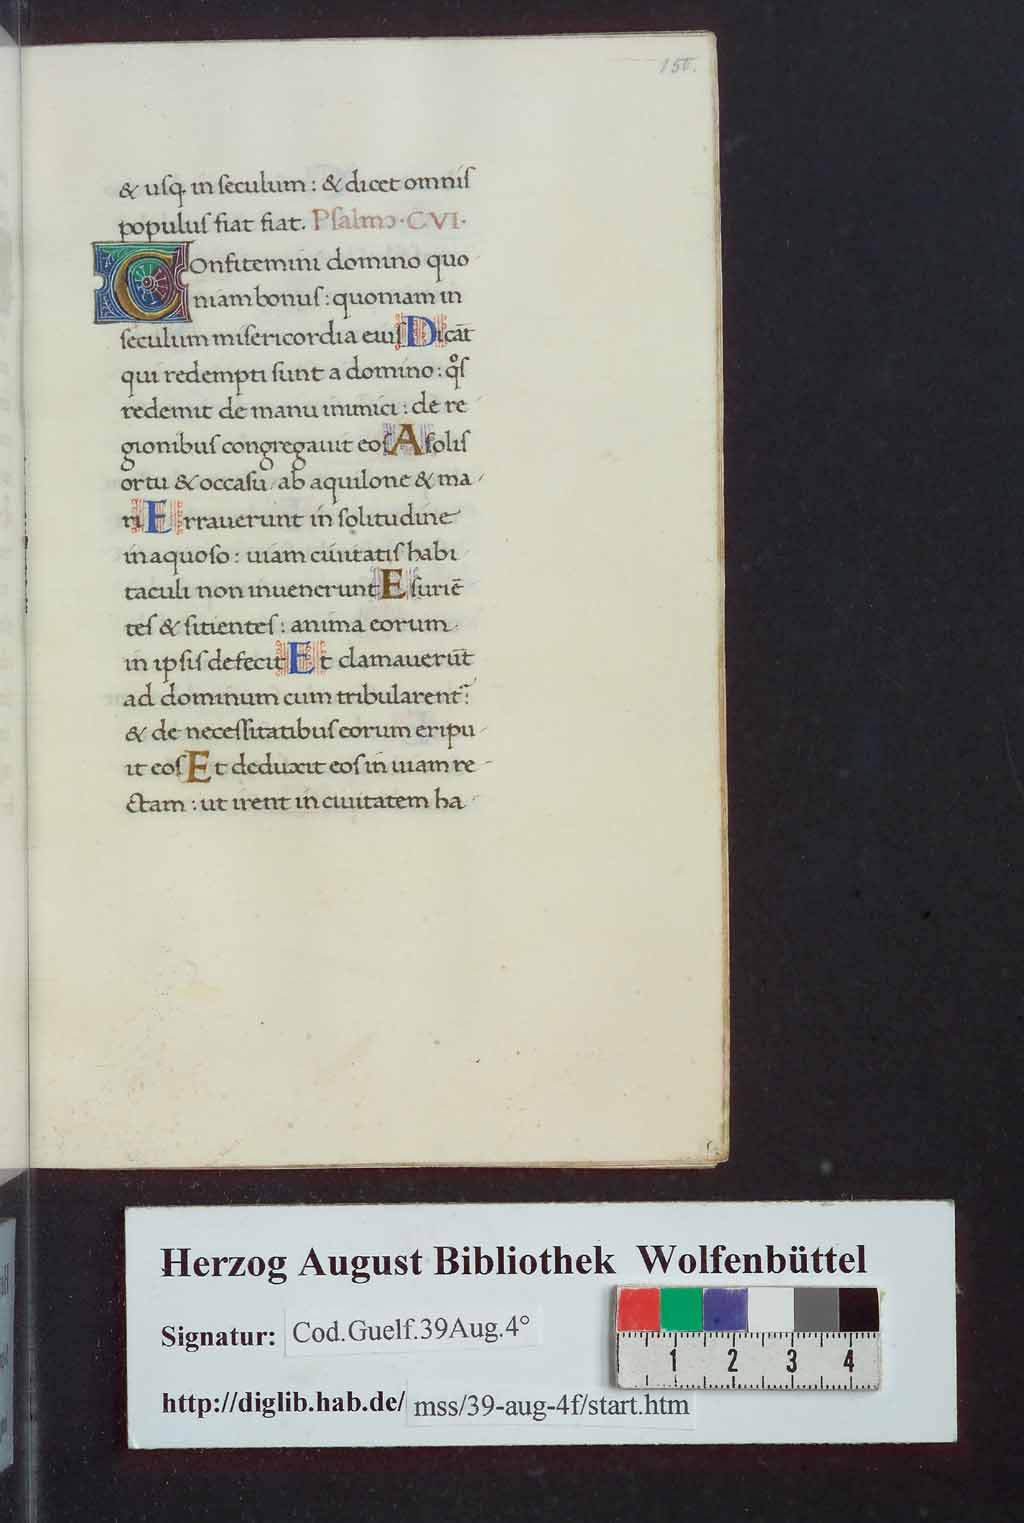 150.
& uſq. in ſeculum : & dicet omniſ
populuſ fiat fiat. Pſalmo · CVI ·
Confitemini domino quo
niam bonuſ : quoniam in
ſeculum miſericordia eiuſ Dicāt
qui redempti ſunt a domino : qͦſ
redemit de manu inimici : de re
gionibuſ congregauit eoſ A ſoliſ
ortu & occaſu / ab aquilone & ma
ri Errauerunt in ſolitudine
inaquoſo : uiam ciuitatiſ habi
taculi non inuenerunt Eſuriē
teſ & ſitienteſ : anima eorum
in ipſiſ defecit Et clamauerūt
ad dominum cum tribularent᷑ :
& de neceſſitatibuſ eorum eripu
it eoſ Et deduxit eoſ in uiam re
ctam : ut irent in ciuitatem ha
Herzog August Bibliothek Wolfenbüttel
Signatur: Cod.Guelf.39Aug.4°
http://diglib.hab.de/ mss/39-aug-4f/start.htm
1 2 3 4